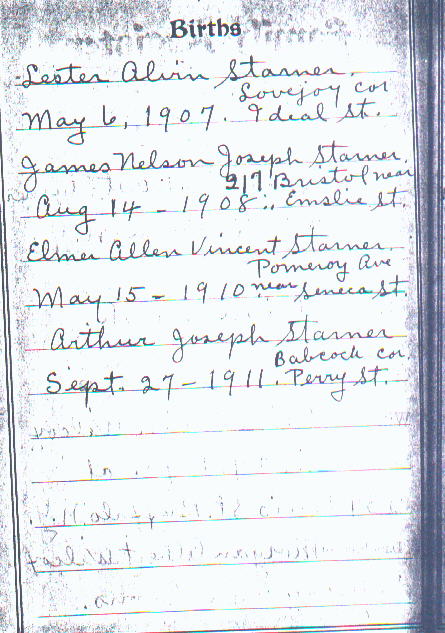 Births
Lester Alvin Starner.
Lovejoy cor
May 6, 1907. Ideal St.
James Nelson Joseph Starner.
217 Bristol near
Aug 14 - 1908. Emslie St.
Elmer Allen Vincent Starner
Pomeroy Ave
May 15 - 1910 near Seneca St.
Arthur Joseph Starner
Babcock cor.
Sept. 27 - 1911. Perry St.